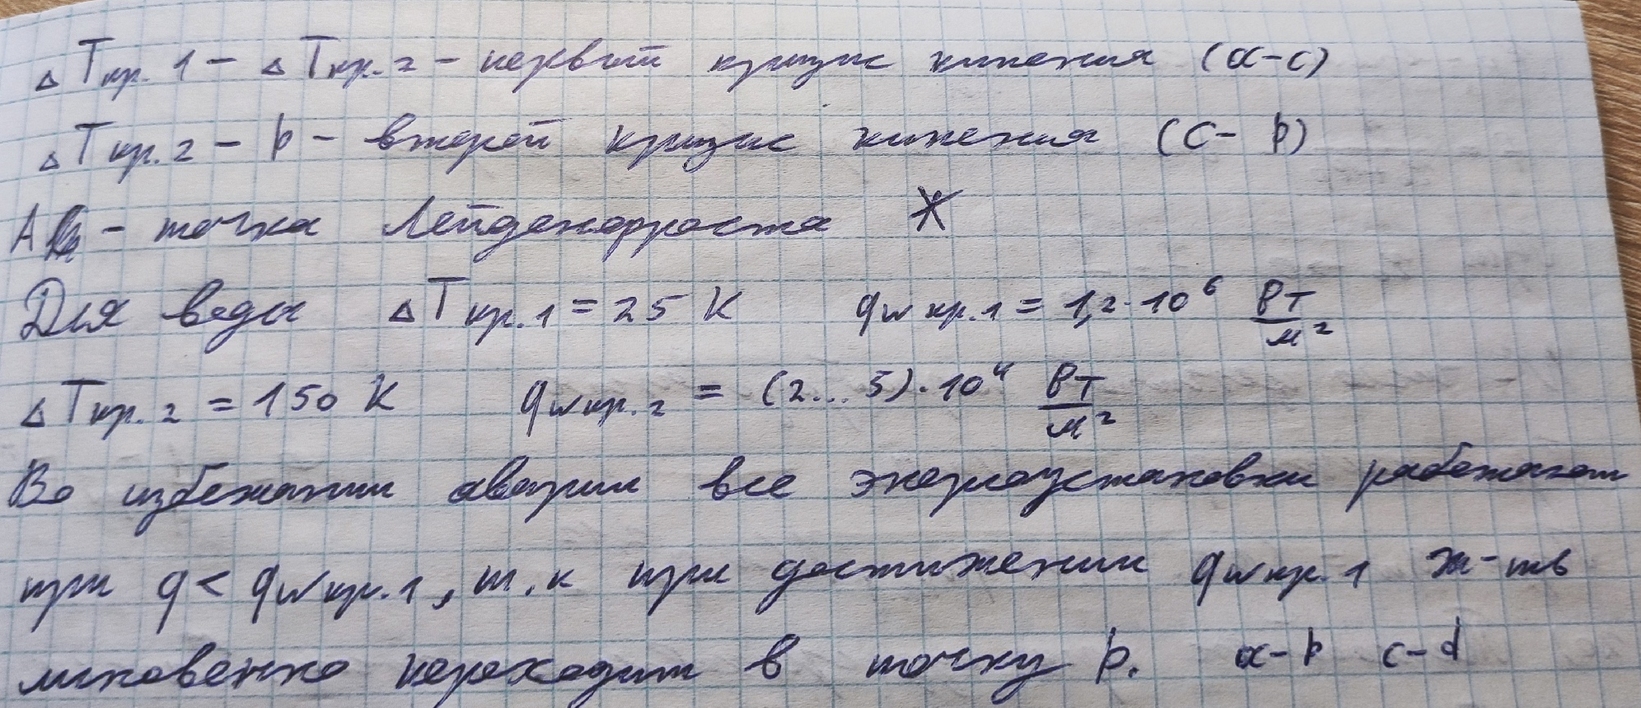 ΔTкр.1 – ΔTкр.2 – первый кризис кипения (a-c)
ΔTкр.2 – p – второй кризис кипения (c- p)
A – точка Лейденфроста *
Для воды ΔTкр.1 = 25 K qw кр.1 = 1,2·10⁶ Вт/м²
ΔTкр.2 = 150 K qw кр.2 = (2...5)·10⁴ Вт/м²
Во избежании аварии все энергоустановки работают
при q < qw кр.1, т.к при достижении qw кр.1 ж-ть
мгновенно переходит в точку p. a-p c-d